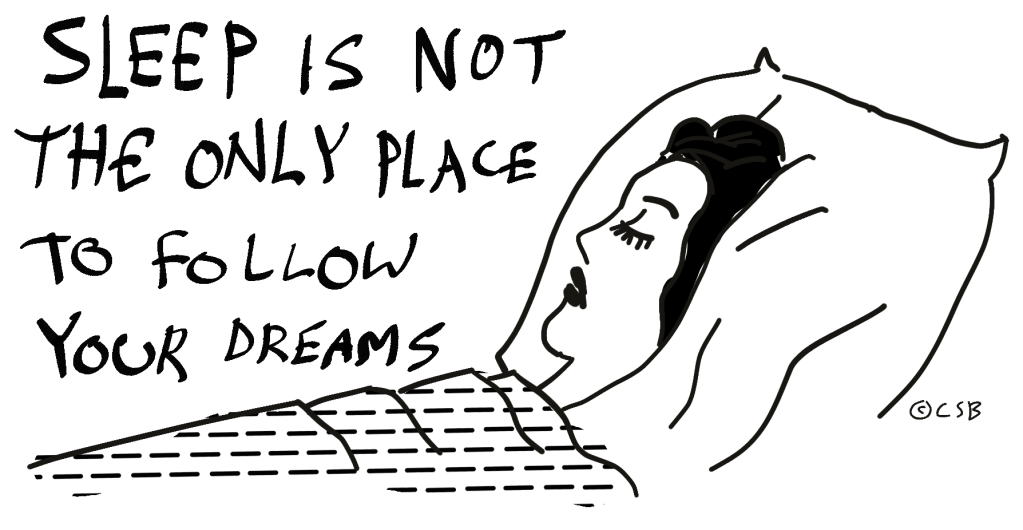 SLEEP IS NOT
THE ONLY PLACE
TO FOLLOW
YOUR DREAMS
©CSB